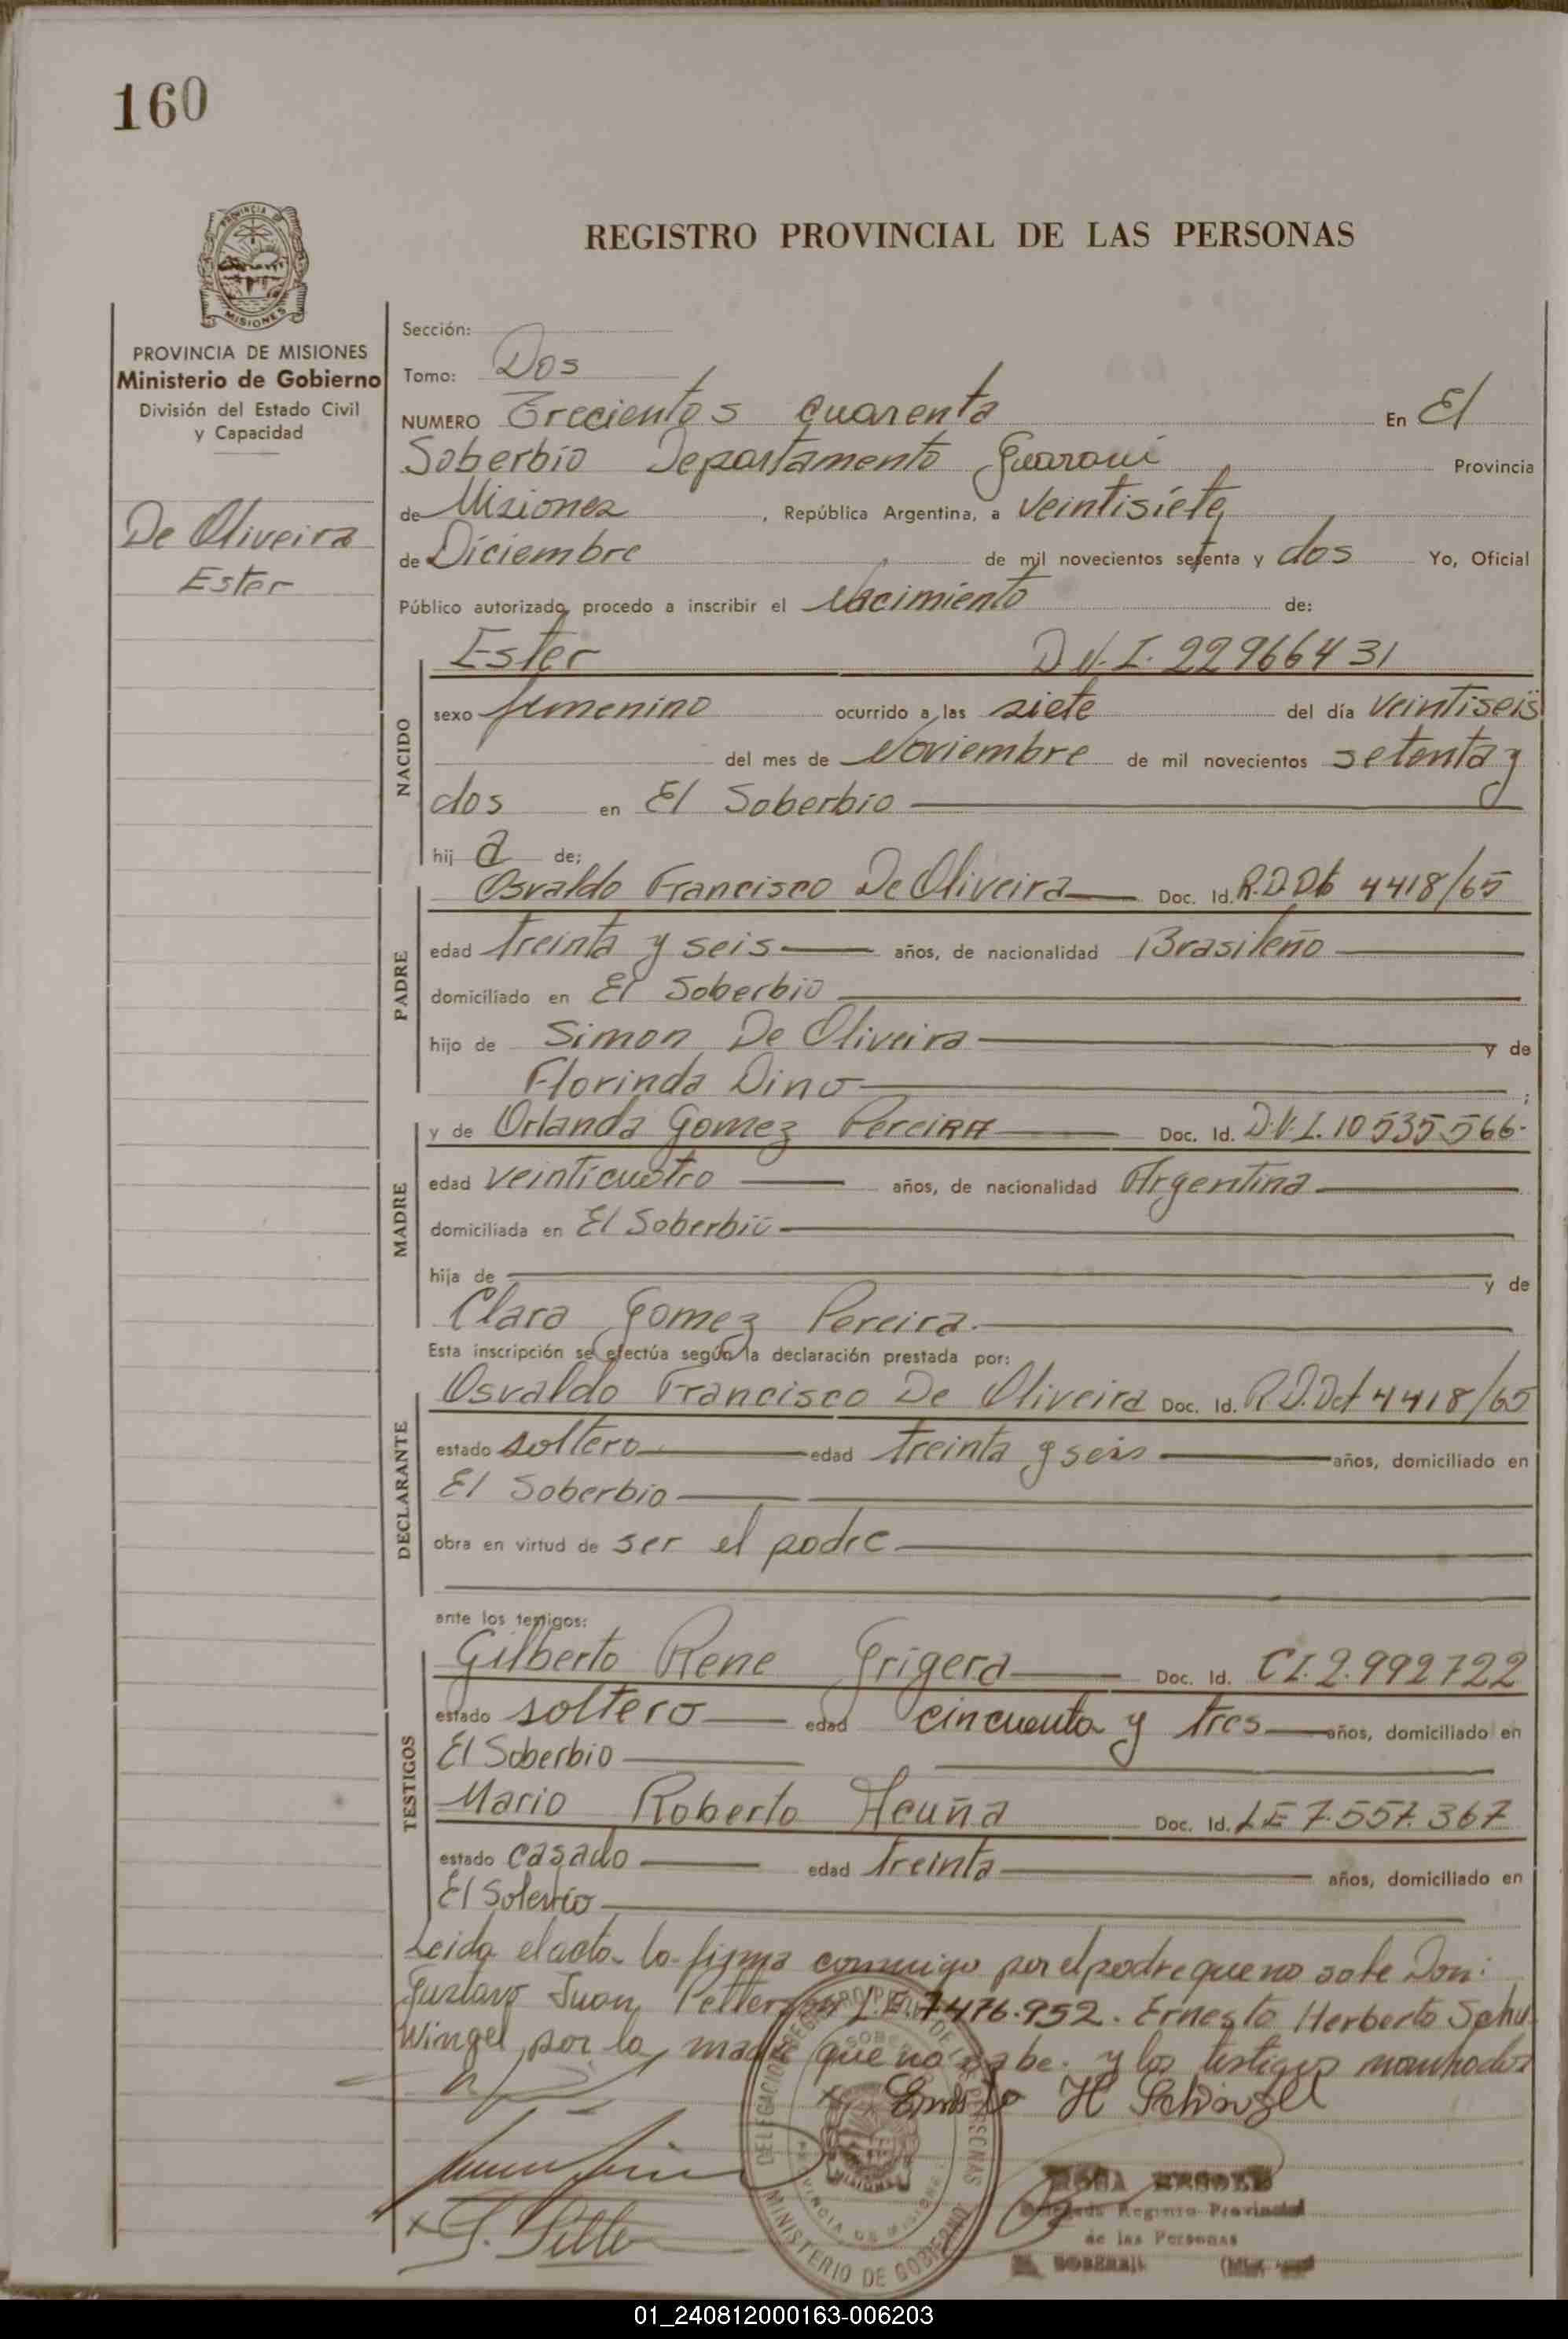 160
PROVINCIA DE
MISIONES
REGISTRO PROVINCIAL DE LAS PERSONAS
PROVINCIA DE MISIONES
Ministerio de Gobierno
División del Estado Civil
y Capacidad
De Oliveira
Ester
Sección:
Tomo: Dos
NUMERO Trecientos cuarenta En El
Soberbio Departamento Guarani Provincia
de Misiones, República Argentina, a veintisiete
de Diciembre de mil novecientos setenta y dos Yo, Oficial
Público autorizado, procedo a inscribir el Nacimiento de:
NACIDO
Ester D.N.I. 22966431
sexo femenino ocurrido a las siete del día veintiseis
del mes de Noviembre de mil novecientos setenta y
dos en El Soberbio
hij a de;
PADRE
Osvaldo Francisco De Oliveira Doc. Id. 4418/65
edad treinta y seis años, de nacionalidad Brasileño
domiciliado en El Soberbio
hijo de Simon De Oliveira y de
Florinda Dino ;
MADRE
y de Orlanda Gomez Pereira Doc. Id. D.N.I. 10535566.
edad veinticuatro años, de nacionalidad Argentina
domiciliada en El Soberbio
hija de y de
Clara Gomez Pereira.
Esta inscripción se efectúa según la declaración prestada por:
DECLARANTE
Osvaldo Francisco De Oliveira Doc. Id. 4418/65
estado soltero edad treinta y seis años, domiciliado en
El Soberbio
obra en virtud de ser el padre
ante los testigos:
TESTIGOS
Gilberto Rene Grigera Doc. Id. C.I. 2.992722
estado soltero edad cincuenta y tres años, domiciliado en
El Soberbio
Mario Roberto Acuña Doc. Id. L.E. 7.557.367
estado casado edad treinta años, domiciliado en
El Soberbio
Leida el acta la firma conmigo por el padre que no sabe Don:
Gustavo Juan L.E. 7476.952. Ernesto Herberto Schu
wingel, por la madre que no sabe. y los testigos
Ernesto H Schwingel
MINISTERIO DE GOBIERNO
PROVINCIA DE MISIONES
Registro Provincial
de las Personas
SOBERBIO
01_240812000163-006203